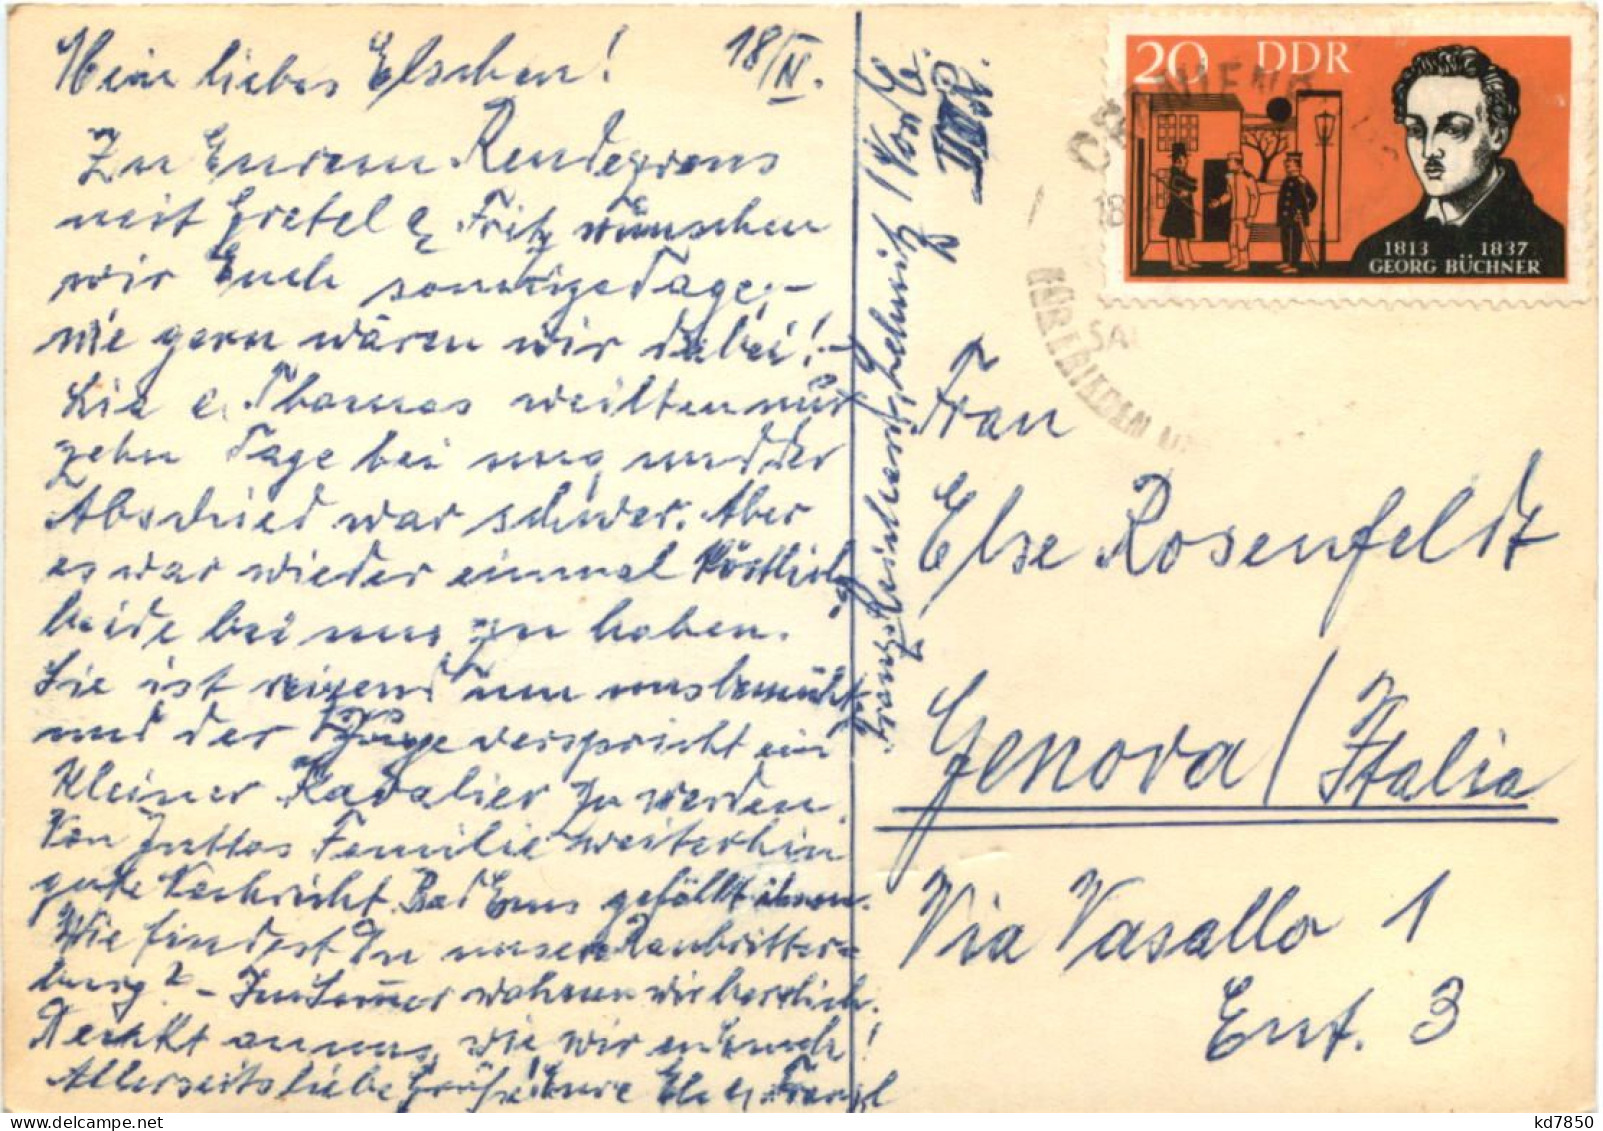 Mein liebes Elschen! 18/IV.
Zu Eurem Rendezvous
mit Gretel & Fritz wünschen
wir Euch sonnige Tage,-
wie gern wären wir dabei!-
Lie & Thomas weilten nur
zehn Tage bei uns, und der
Abschied war schwer. Aber
es war wieder einmal köstlich,
beide bei uns zu haben.
Sie ist reizend um uns bemüht
und der Junge verspricht ein
kleiner Kavalier zu werden.
Von Juttas Familie weiterhin
gute Nachricht. Bad Ems gefällt ihnen.
Wie findest Du unsere Raubritter-
burg? - Im Sommer wohnen wir herrlich.
Denkt an uns, wie wir an Euch!
Allerseits liebe Grüße! Eure Else & Franzl
Lehnitz
20 DDR
1813 1837
GEORG BÜCHNER
18
FÜR FRIEDEN
Frau
Else Rosenfeldt
Genova / Italia
Via Vasallo 1
Ent. 3
kd7850